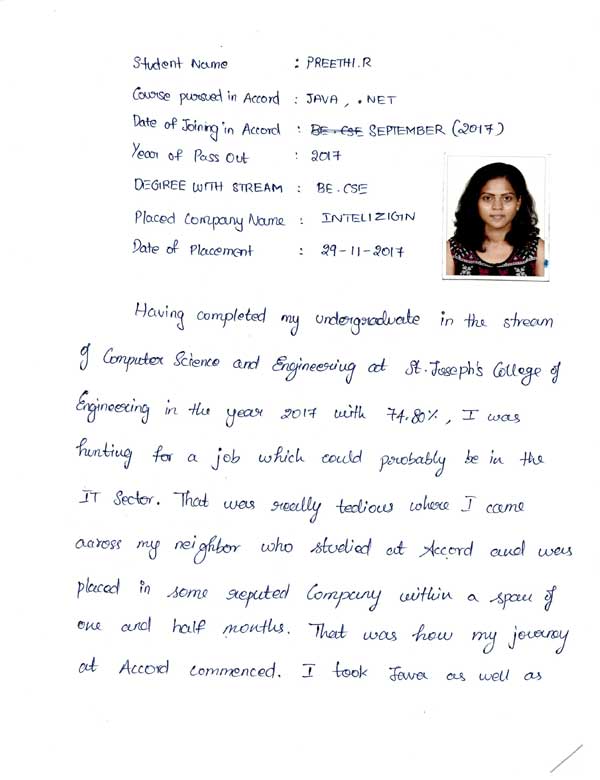 Student Name : PREETHI.R
Course pursued in Accord : JAVA, .NET
Date of Joining in Accord : BE-CSE SEPTEMBER (2017)
Year of Pass Out : 2017
DEGIREE WITH STREAM : BE.CSE
Placed Company Name : INTELIZIGIN
Date of Placement : 29-11-2017
Having completed my undergraduate in the stream
of Computer Science and Engineering at St. Joseph's College of
Engineering in the year 2017 with 74.80%, I was
hunting for a job which could probably be in the
IT Sector. That was really tedious where I came
across my neighbor who studied at Accord and was
placed in some reputed Company within a span of
one and half months. That was how my journey
at Accord commenced. I took Java as well as